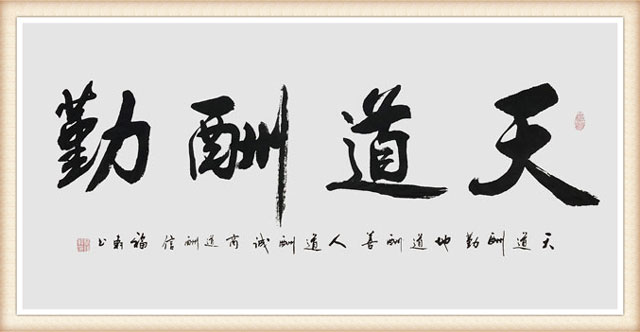 天道酬勤
天道酬勤地道酬善人道酬诚商道酬信福书